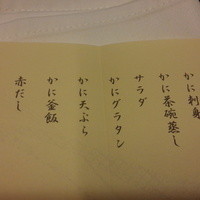 かに刺身
かに茶碗蒸し
サラダ
かにグラタン
かに天ぷら
かに釜飯
赤だし